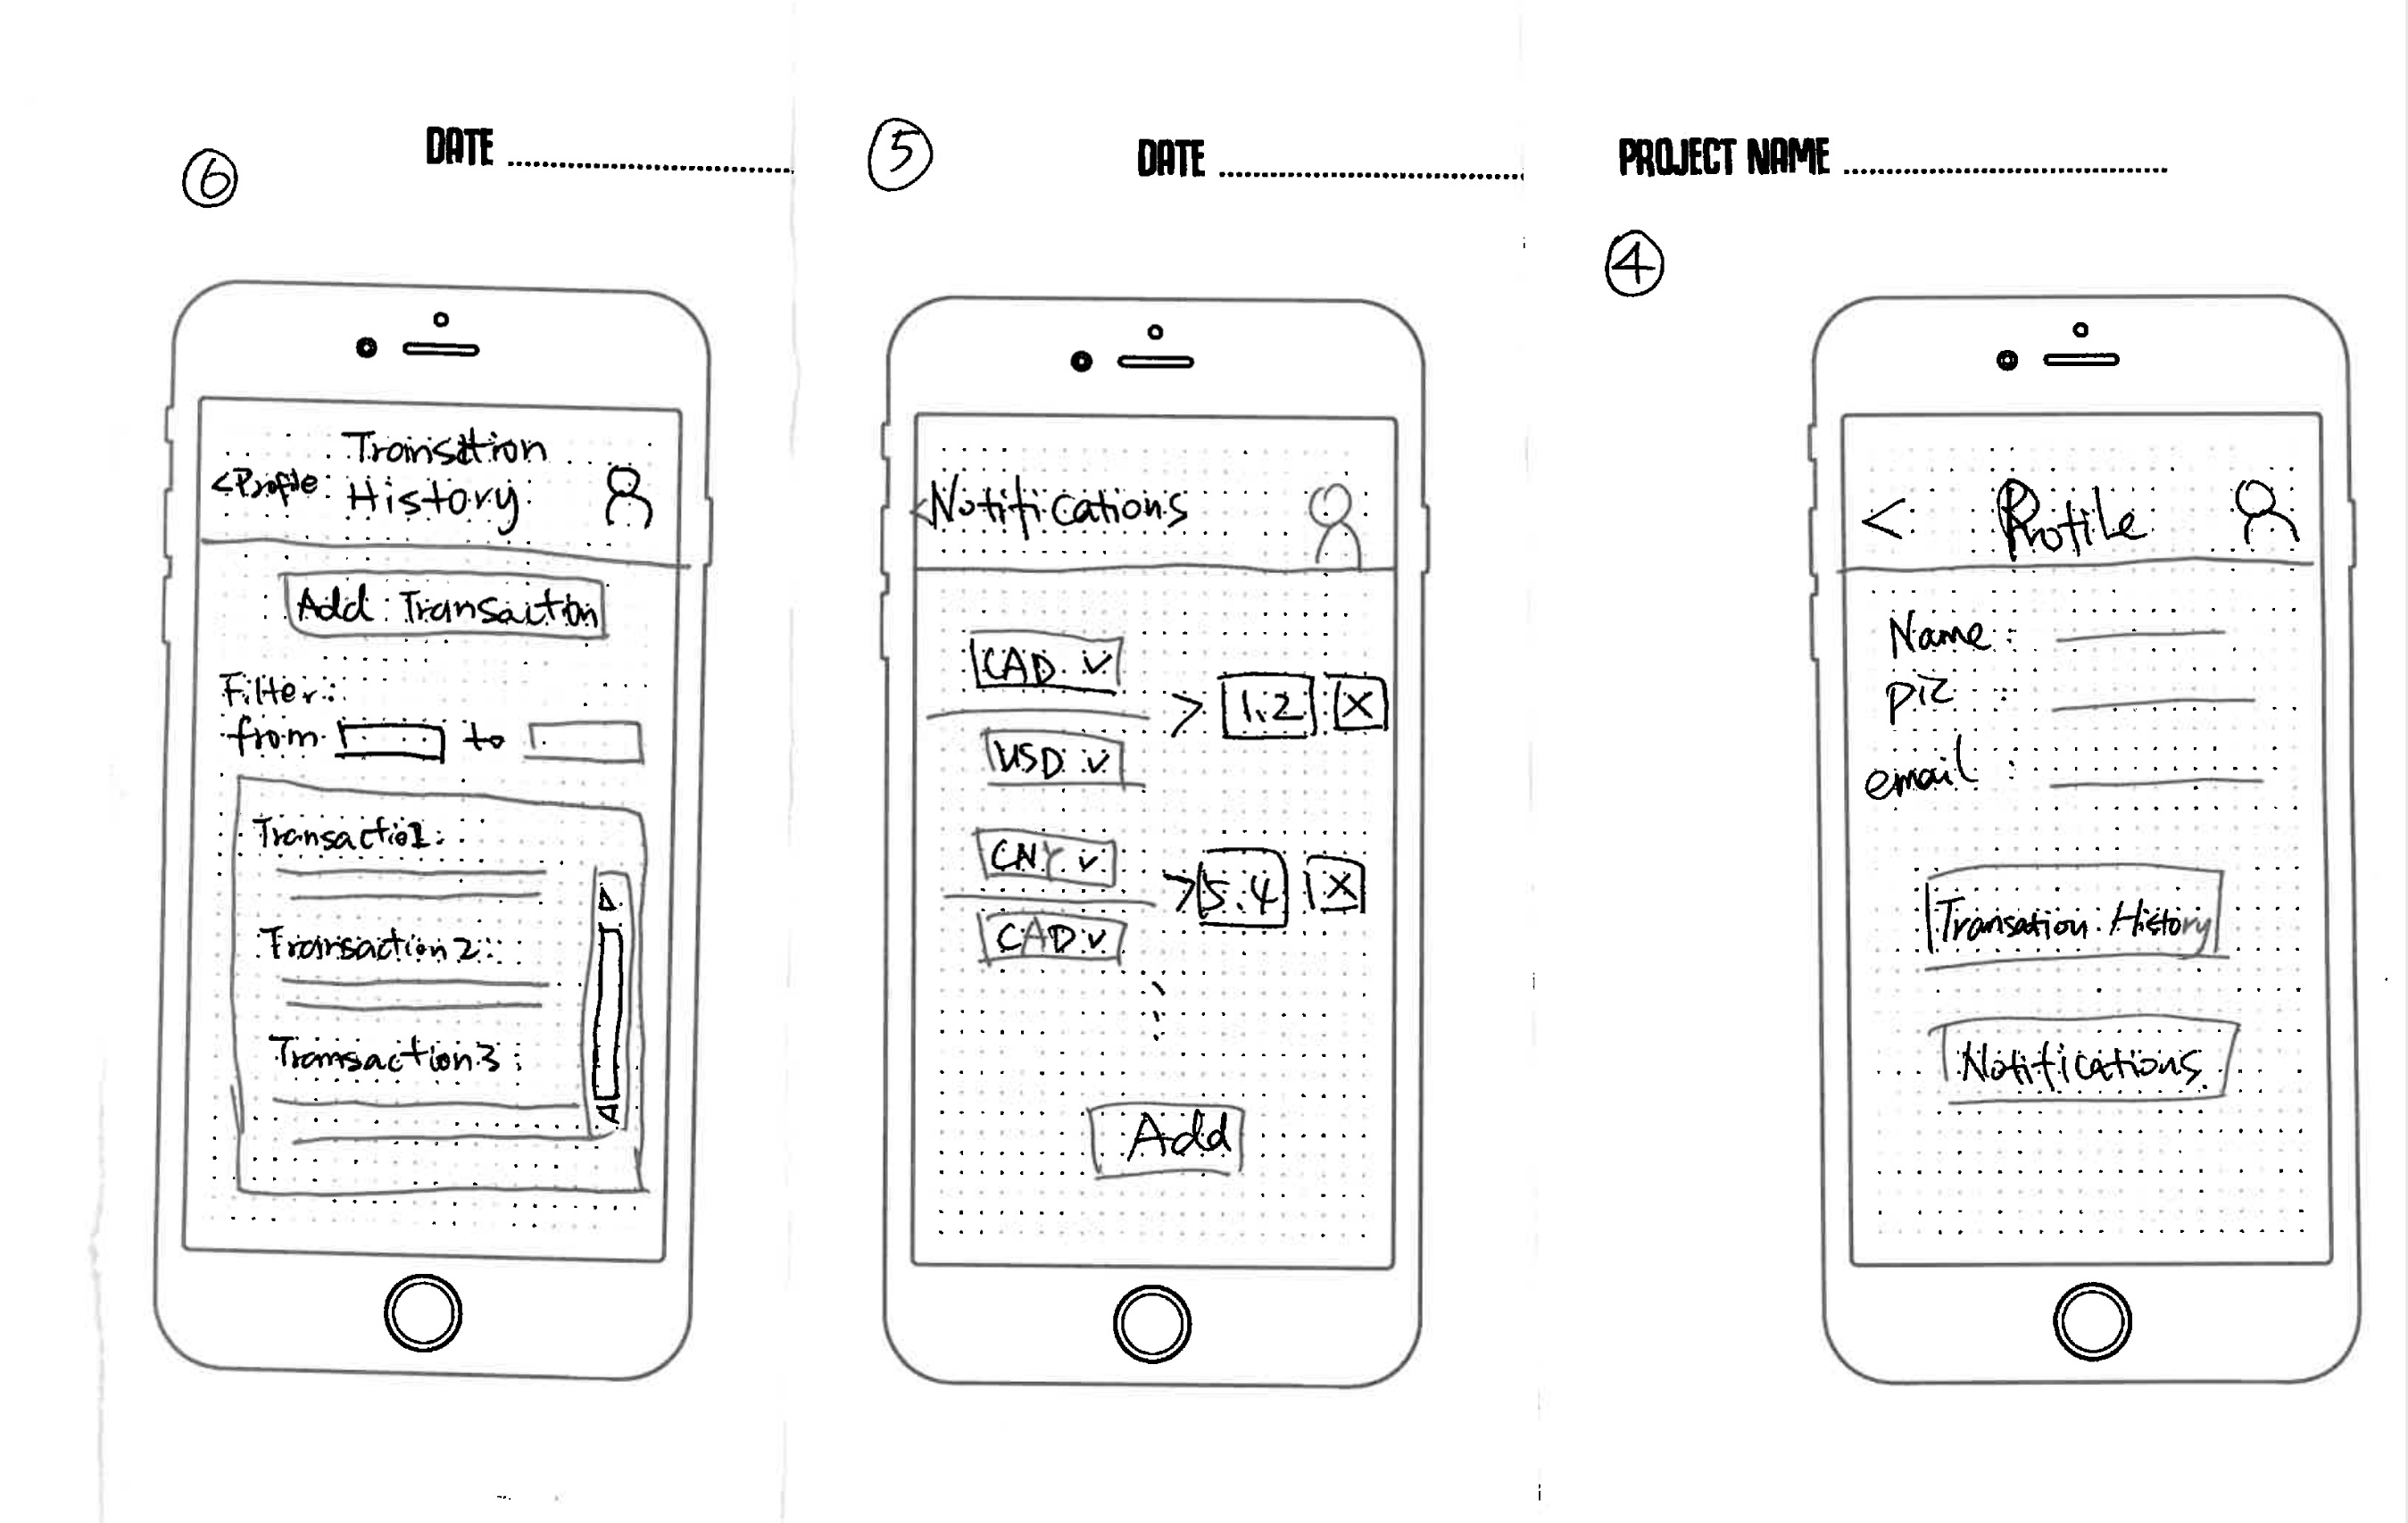 6
DATE
Transition
<Profile
History
Add Transaction
Filter:
from to
Transactio1:
Transaction 2:
Transaction 3:
5
DATE
<Notifications
CAD
> 1.2 X
USD
CNY
> 5.4 X
CAD
Add
PROJECT NAME
4
< Profile
Name:
pic :
email :
Transation History
Notifications